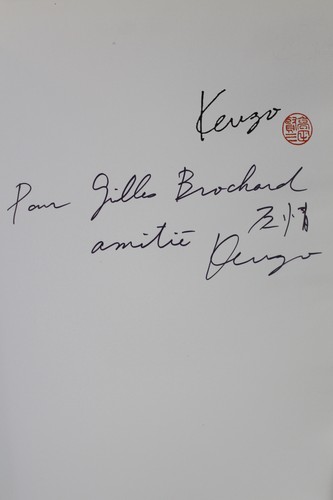 Kenzo
Pour Gilles Brochard
amitié 友情
Kenzo